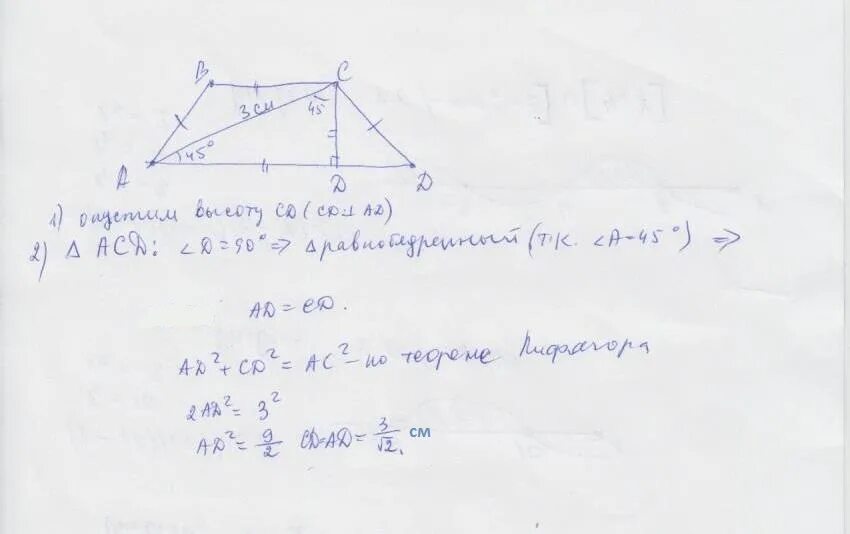 B C
3 см 45
45°
A D D
1) опустим высоту CD (CD⊥AD)
2) △ ACD: ∠D = 90° => △ равнобедренный (т.к. ∠A = 45°) =>
AD = CD.
AD² + CD² = AC² – по теореме Пифагора
2AD² = 3²
AD² = 9/2 CD=AD= 3/√2. см